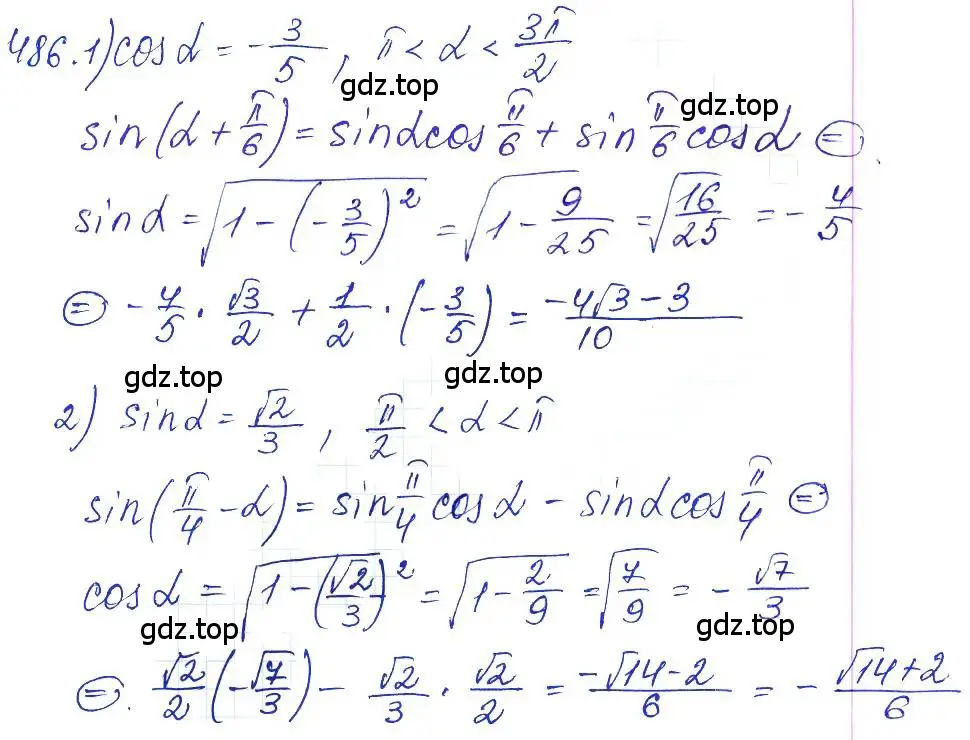 486. 1) cos α = -3/5, π < α < 3π/2
gdz.top
gdz.top
sin(α + π/6) = sinα cos π/6 + sin π/6 cos α ⊜
sin α = √(1 - (-3/5)²) = √(1 - 9/25) = √(16/25) = -4/5
⊜ -4/5 · √3/2 + 1/2 · (-3/5) = (-4√3 - 3)/10
gdz.top
gdz.top
2) sin α = √2/3, π/2 < α < π
sin(π/4 - α) = sin π/4 cos α - sin α cos π/4 ⊜
cos α = √(1 - (√2/3)²) = √(1 - 2/9) = √(7/9) = -√7/3
gdz.top
gdz.top
⊜ √2/2 (-√7/3) - √2/3 · √2/2 = (-√14 - 2)/6 = -(√14 + 2)/6